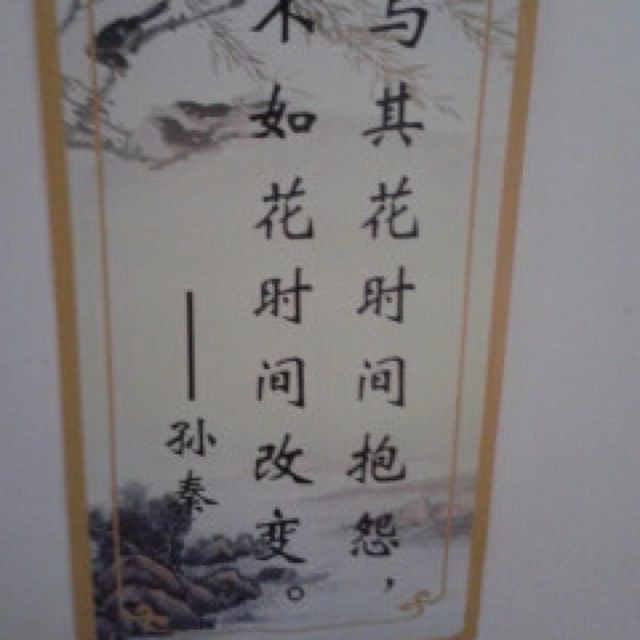 与其花时间抱怨，
不如花时间改变。
——孙秦